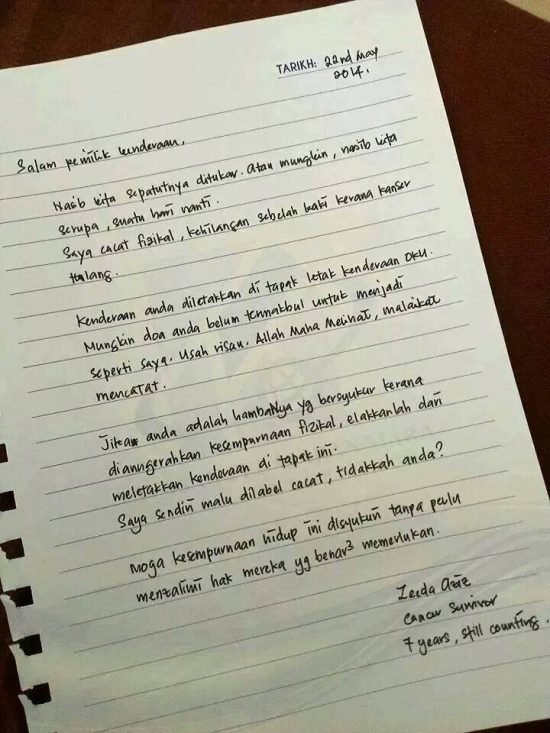 TARIKH: 22nd May
2014.
Salam pemilik kenderaan,
Nasib kita sepatutnya ditukar. Atau mungkin, nasib kita
serupa, suatu hari nanti.
Saya cacat fizikal, kehilangan sebelah kaki kerana kanser
tulang.
Kenderaan anda diletakkan di tapak letak kenderaan OKU.
Mungkin doa anda belum termakbul untuk menjadi
seperti saya. Usah risau. Allah Maha Melihat, malaikat
mencatat.
Jikaw anda adalah hambaNya yg bersyukur kerana
dianugerahkan kesempurnaan fizikal, elakkanlah dari
meletakkan kenderaan di tapak ini.
Saya sendiri malu dilabel cacat, tidakkah anda?
Moga kesempurnaan hidup ini disyukuri tanpa perlu
menzalimi hak mereka yg benar² memerlukan.
Zeeda Aziz
Cancer Survivor
7 years, still counting.